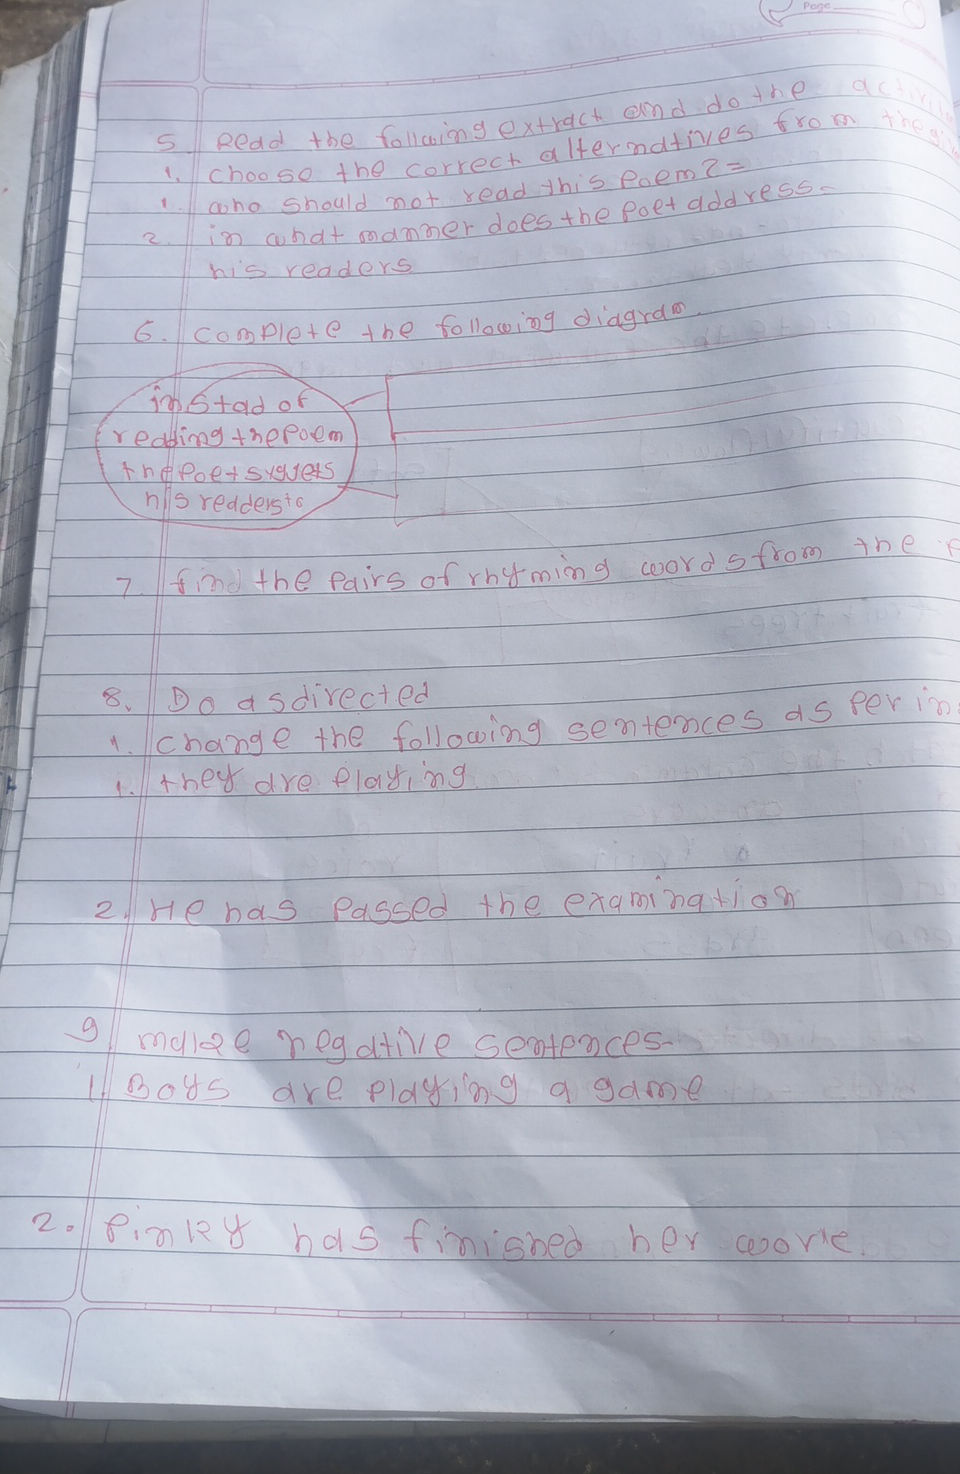 Page
5. Read the following extract and do the
1. choose the correct alternatives from the
1. who should not read this Poem? =
2. in what manner does the Poet address-
his readers
6. complete the following diagram.
instad of
reading the Poem
the Poet
his readers to
7. find the Pairs of rhyming words from the
8. Do as directed
1. change the following sentences as Per
1. they are Playing
2. He has Passed the examination
9 make negative sentences-
1. Boys are Playing a game
2. Pinky has finished her work.